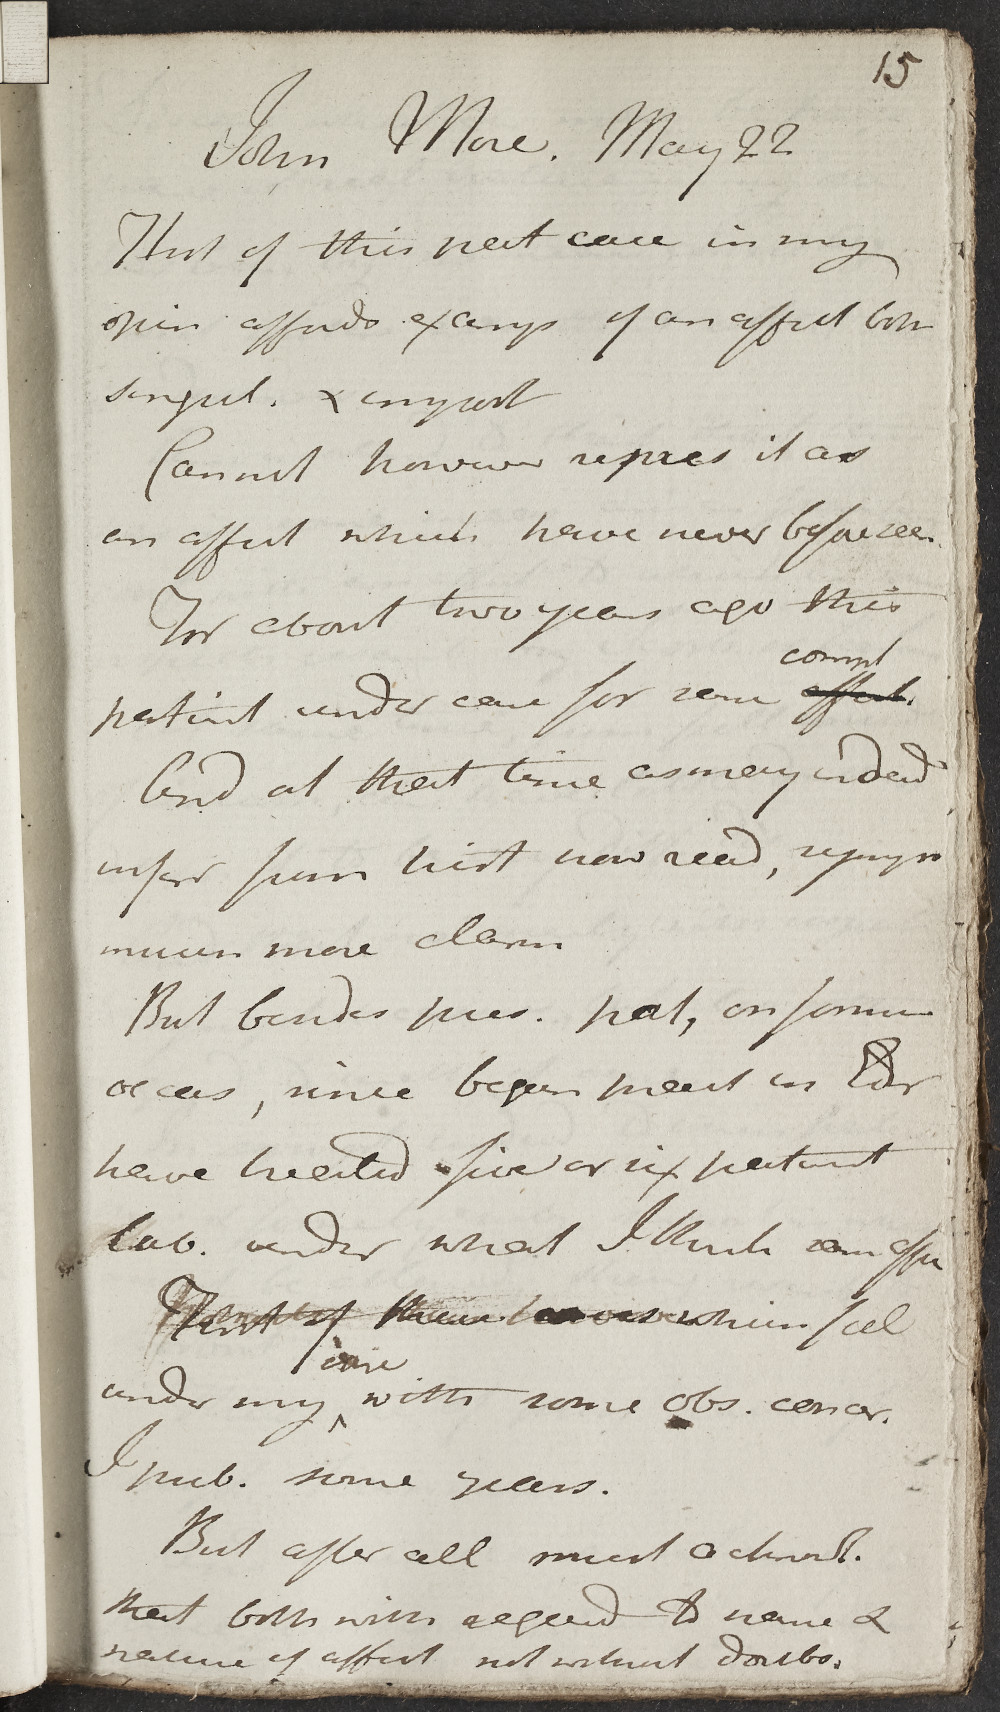 15
John More. May 22
Hist of this patt case in my
opin affords examp of an affect both
singul. & import
Cannot however repres it as
an affect which have never before seen.
For about two years ago this
compl
patient under care for same affect.
And at that time as may indeed
infer from hist now read, sympt
much more alarm
But besides pres. pat, on former
occas, since began pract in Edr
have treated five or six patient
lab. under what I think same affec
First of these which fell
care
under my with some obs. concer.
I pub. some years.
But after all must acknowl.
that both with regard to name &
nature of affect not without doubts.